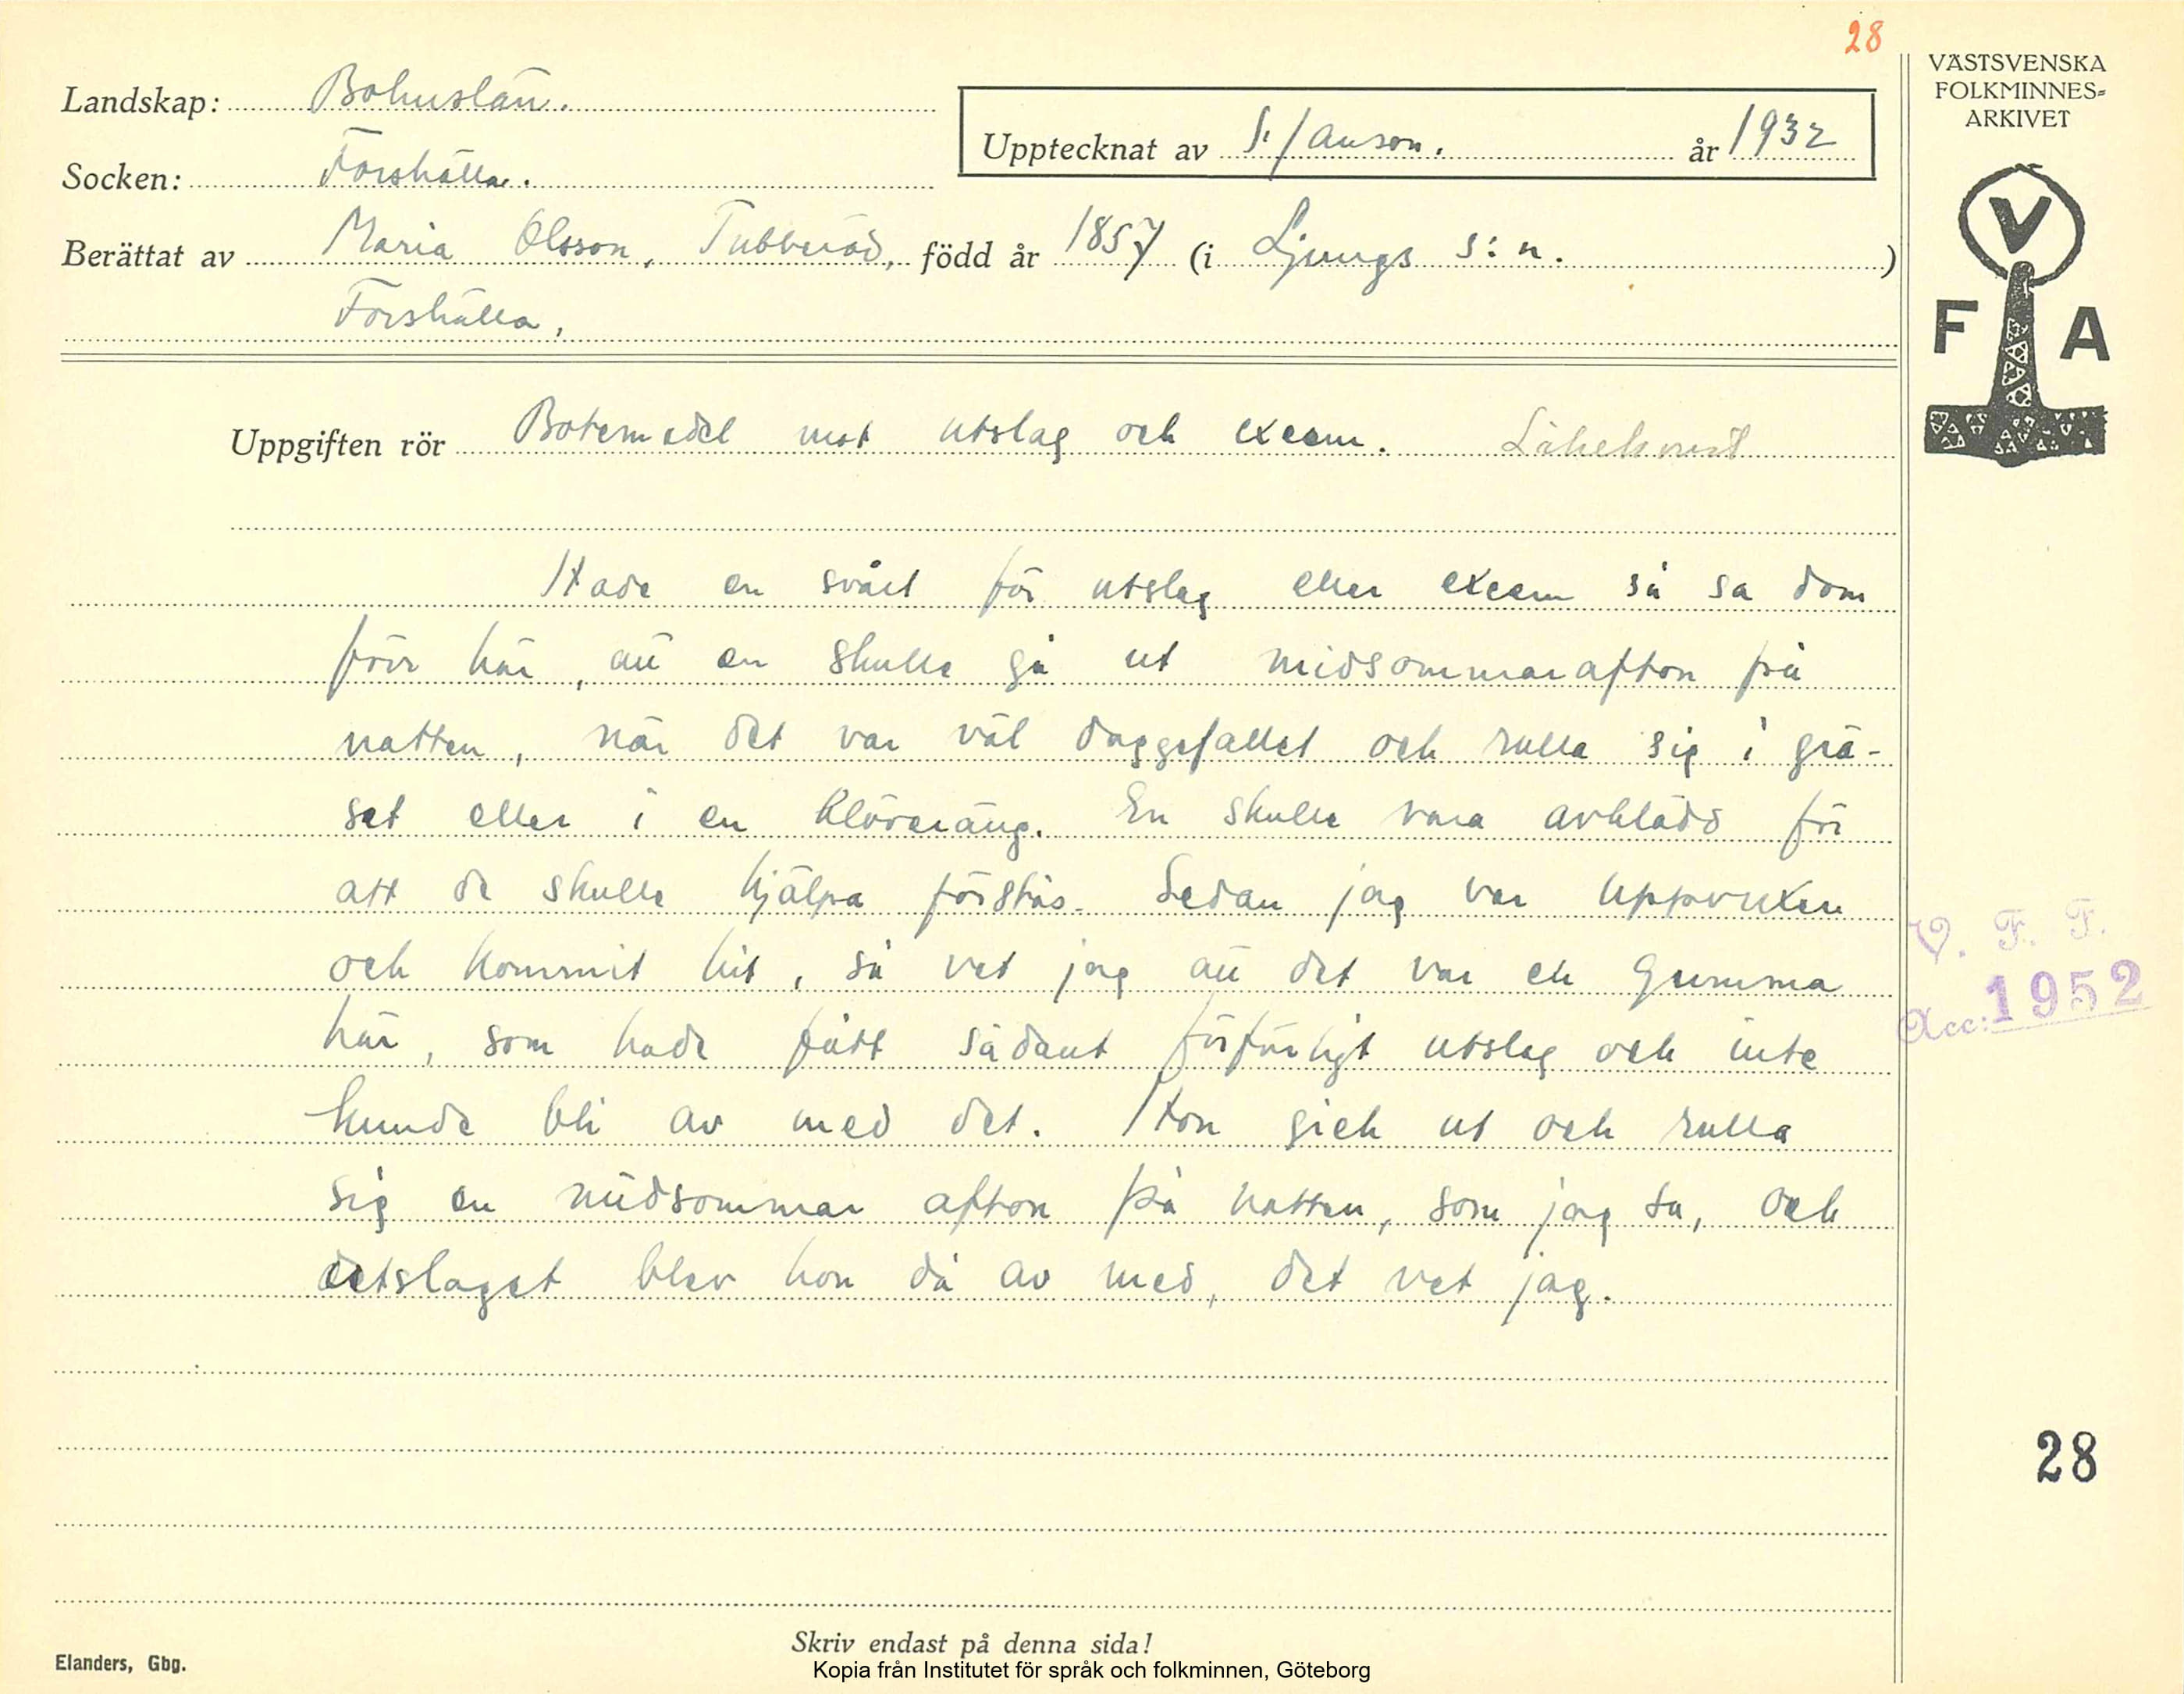 28
VÄSTSVENSKA
FOLKMINNES=
ARKIVET
Landskap: Bohuslän.
Upptecknat av S. Janson. år 1932
Socken: Forshälla.
Berättat av Maria Olsson, Tubberöd, född år 1857 (i Ljungs s:n.)
Forshälla,
V
F A
Uppgiften rör Botemedel mot utslag och exem. Läkekonst
Hade en svårt för utslag eller exem så sa dom
förr här, att en skulle gå ut midsommarafton på
natten, när det var väl daggefallet och rulla sig i grä-
set eller i en klöveräng. En skulle vara avklädd för
att de skulle hjälpa förstås. Sedan jag var uppvuxen
och kommit hit, så vet jag att det var en gumma
här, som hade fått sådant förfärligt utslag och inte
kunde bli av med det. Hon gick ut och rulla
sig en midsommar afton på natten, som jag sa, och
utslaget blev hon då av med, det vet jag.
V. F. F.
Acc: 1952
28
Skriv endast på denna sida!
Elanders, Gbg.
Kopia från Institutet för språk och folkminnen, Göteborg